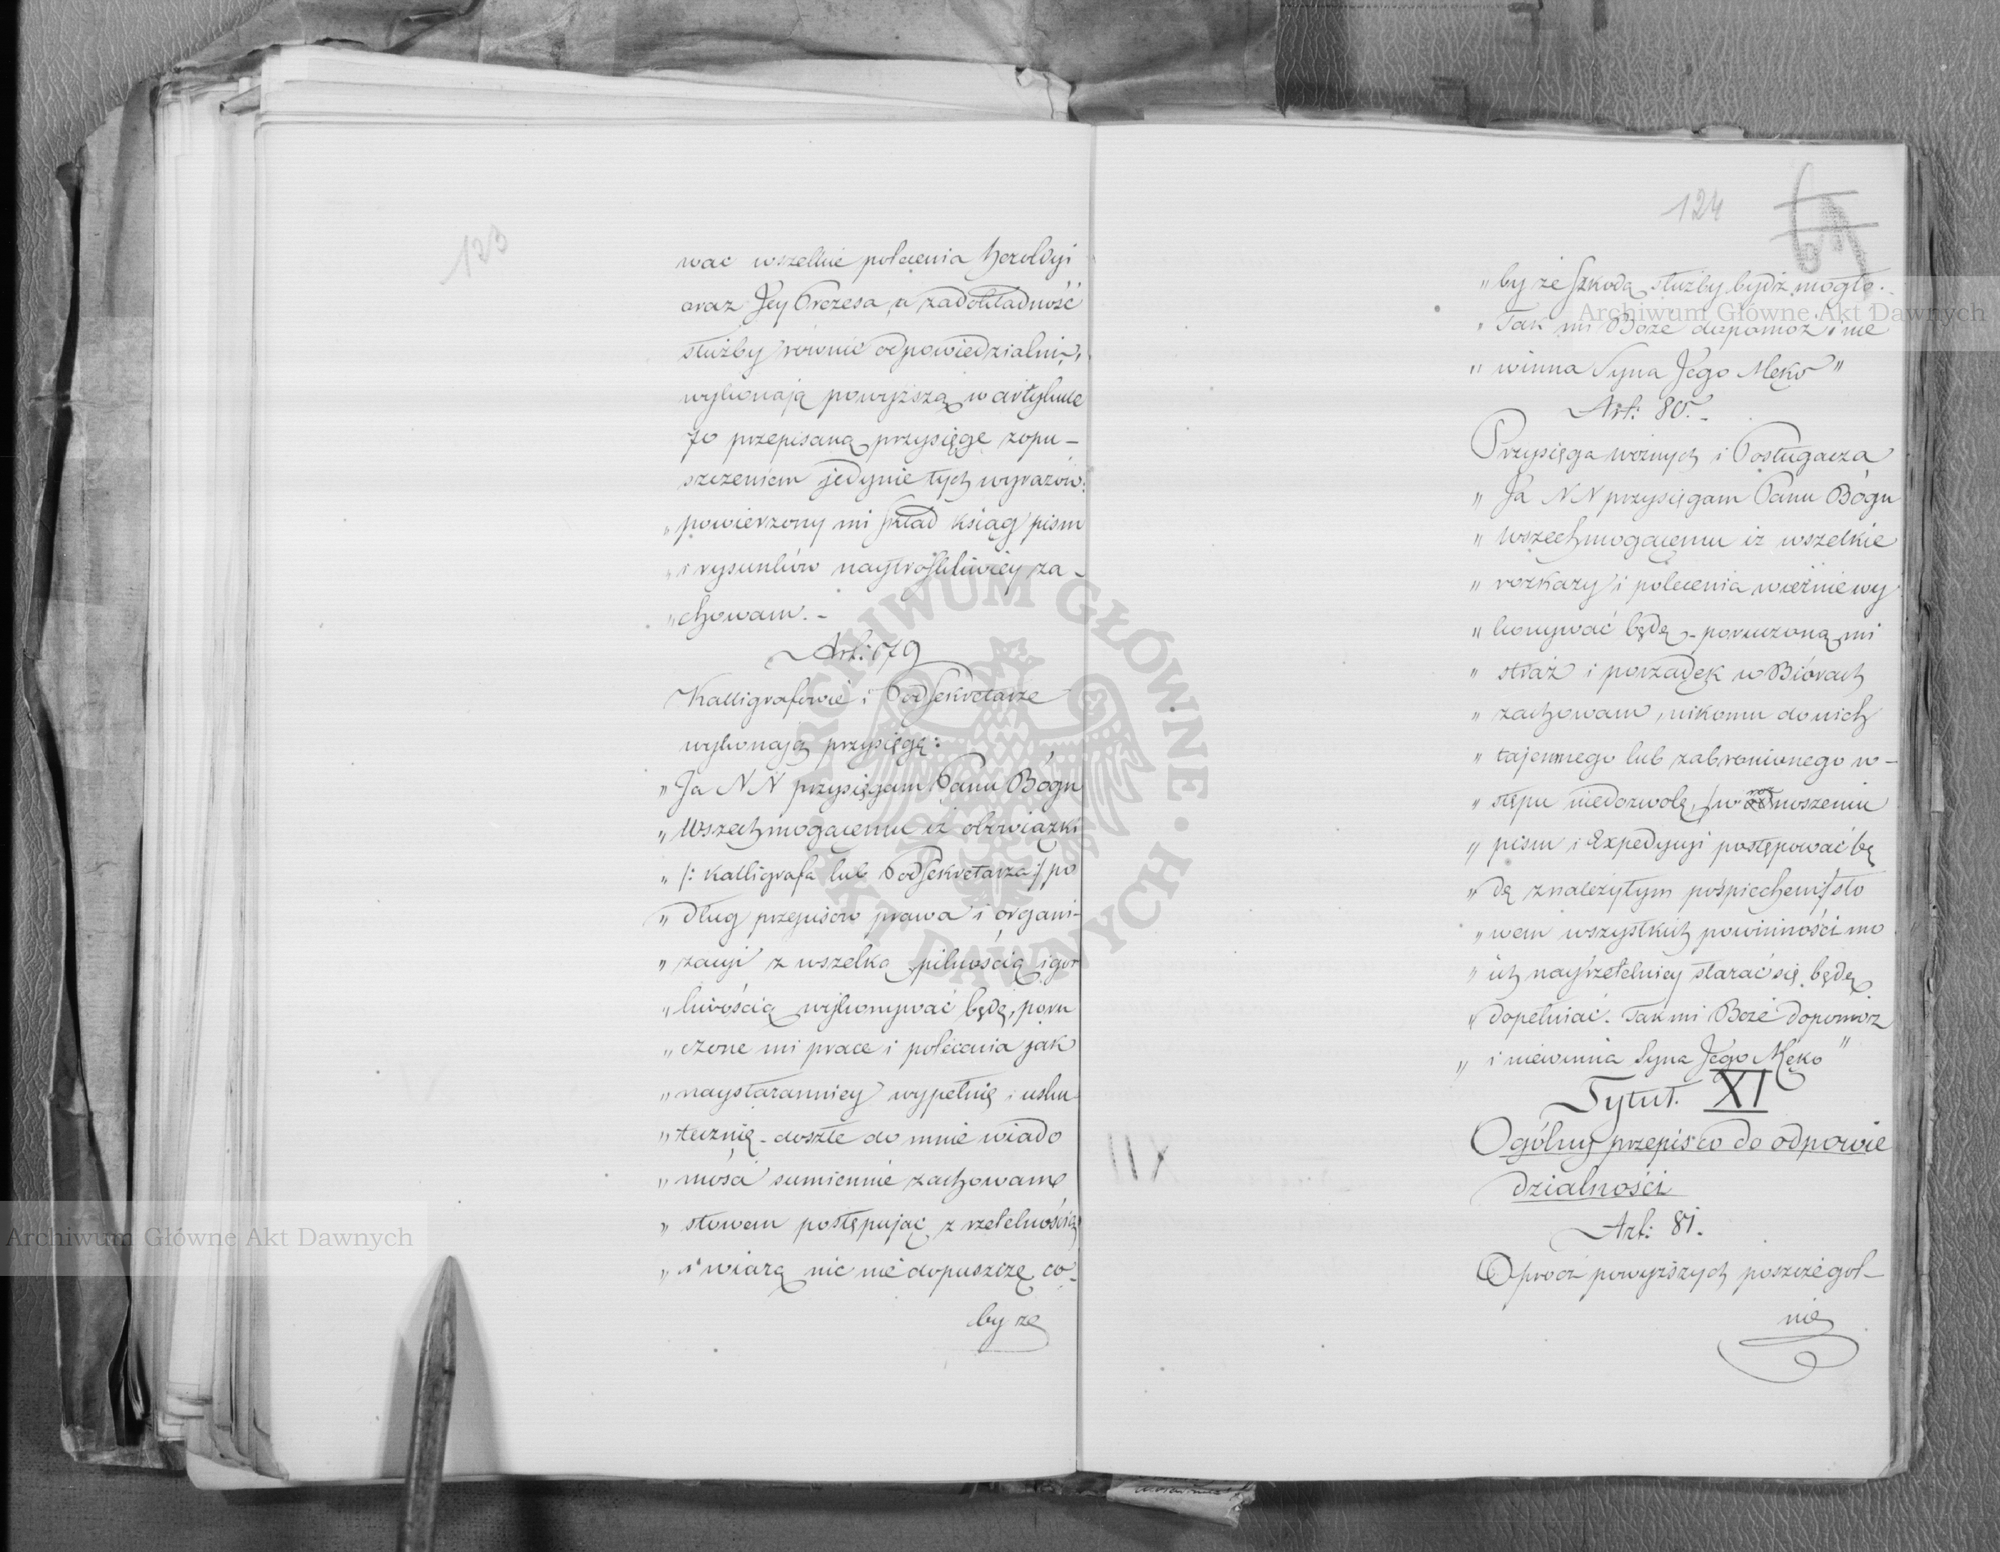 123
wac wszelkie polecenia heroldyi
oraz Jey Prezesa, a za dokładność
służby równie odpowiedzialni,
wykonają powyższą w artykule
70 przepisaną przysięgę z opu-
szczeniem jedynie tych wyrazów:
„powierzony mi skład ksiąg pism
„i rysunków naytroskliwiey za-
„chowam.-
Art: 79
Kalligrafowie i PodSekretarze
wykonają przysięgę:
„Ja NN przysięgam Panu Bogu
„Wszechmogącemu iż obowiązki
„/: kalligrafa lub PodSekretarza :/ po
„dług przepisów prawa i organi-
„zacyi z wszelką pilnością i gor
„liwością wykonywać będę, poru
„czone mi prace i polecenia jak
„naystaranniey wypełnię i usku-
„tecznię - doszłe do mnie wiado
„mości sumiennie zachowam
„słowem postępując z rzetelnością
„i wiarą nic nie dopuszczę co-
by ze
124
„by ze szkodą służby bydź mogło.-
„Tak mi Boże dopomóż i nie
„winna Syna Jego Męko"
Art: 80.-
Przysięga woźnych i Posługacza
„Ja NN przysięgam Panu Bogu
„Wszechmogącemu iż wszelkie
„rozkazy i polecenia wiernie wy
„konywać będę - poruczoną mi
„straż i porządek w Biórach
„zachowam, nikomu do nich
„tajemnego lub zabronionego w-
„stępu niedozwolę, w roznoszeniu
„pism i Expedycyi postępować bę
„dę z należytym pośpiechem, sło
„wem wszystkich powinności mo
„ich nayrzetelniey starać się będę
„dopełniać. Tak mi Boże dopomóż
„i niewinna Syna Jego Męko"
Tytuł. XI
Ogólny przepis co do odpowie
dzialności
Art: 81.
Oprócz powyższych poszczegół-
nie
Archiwum Główne Akt Dawnych
Archiwum Główne Akt Dawnych
ARCHIWUM GŁÓWNE · AKT DAWNYCH ·